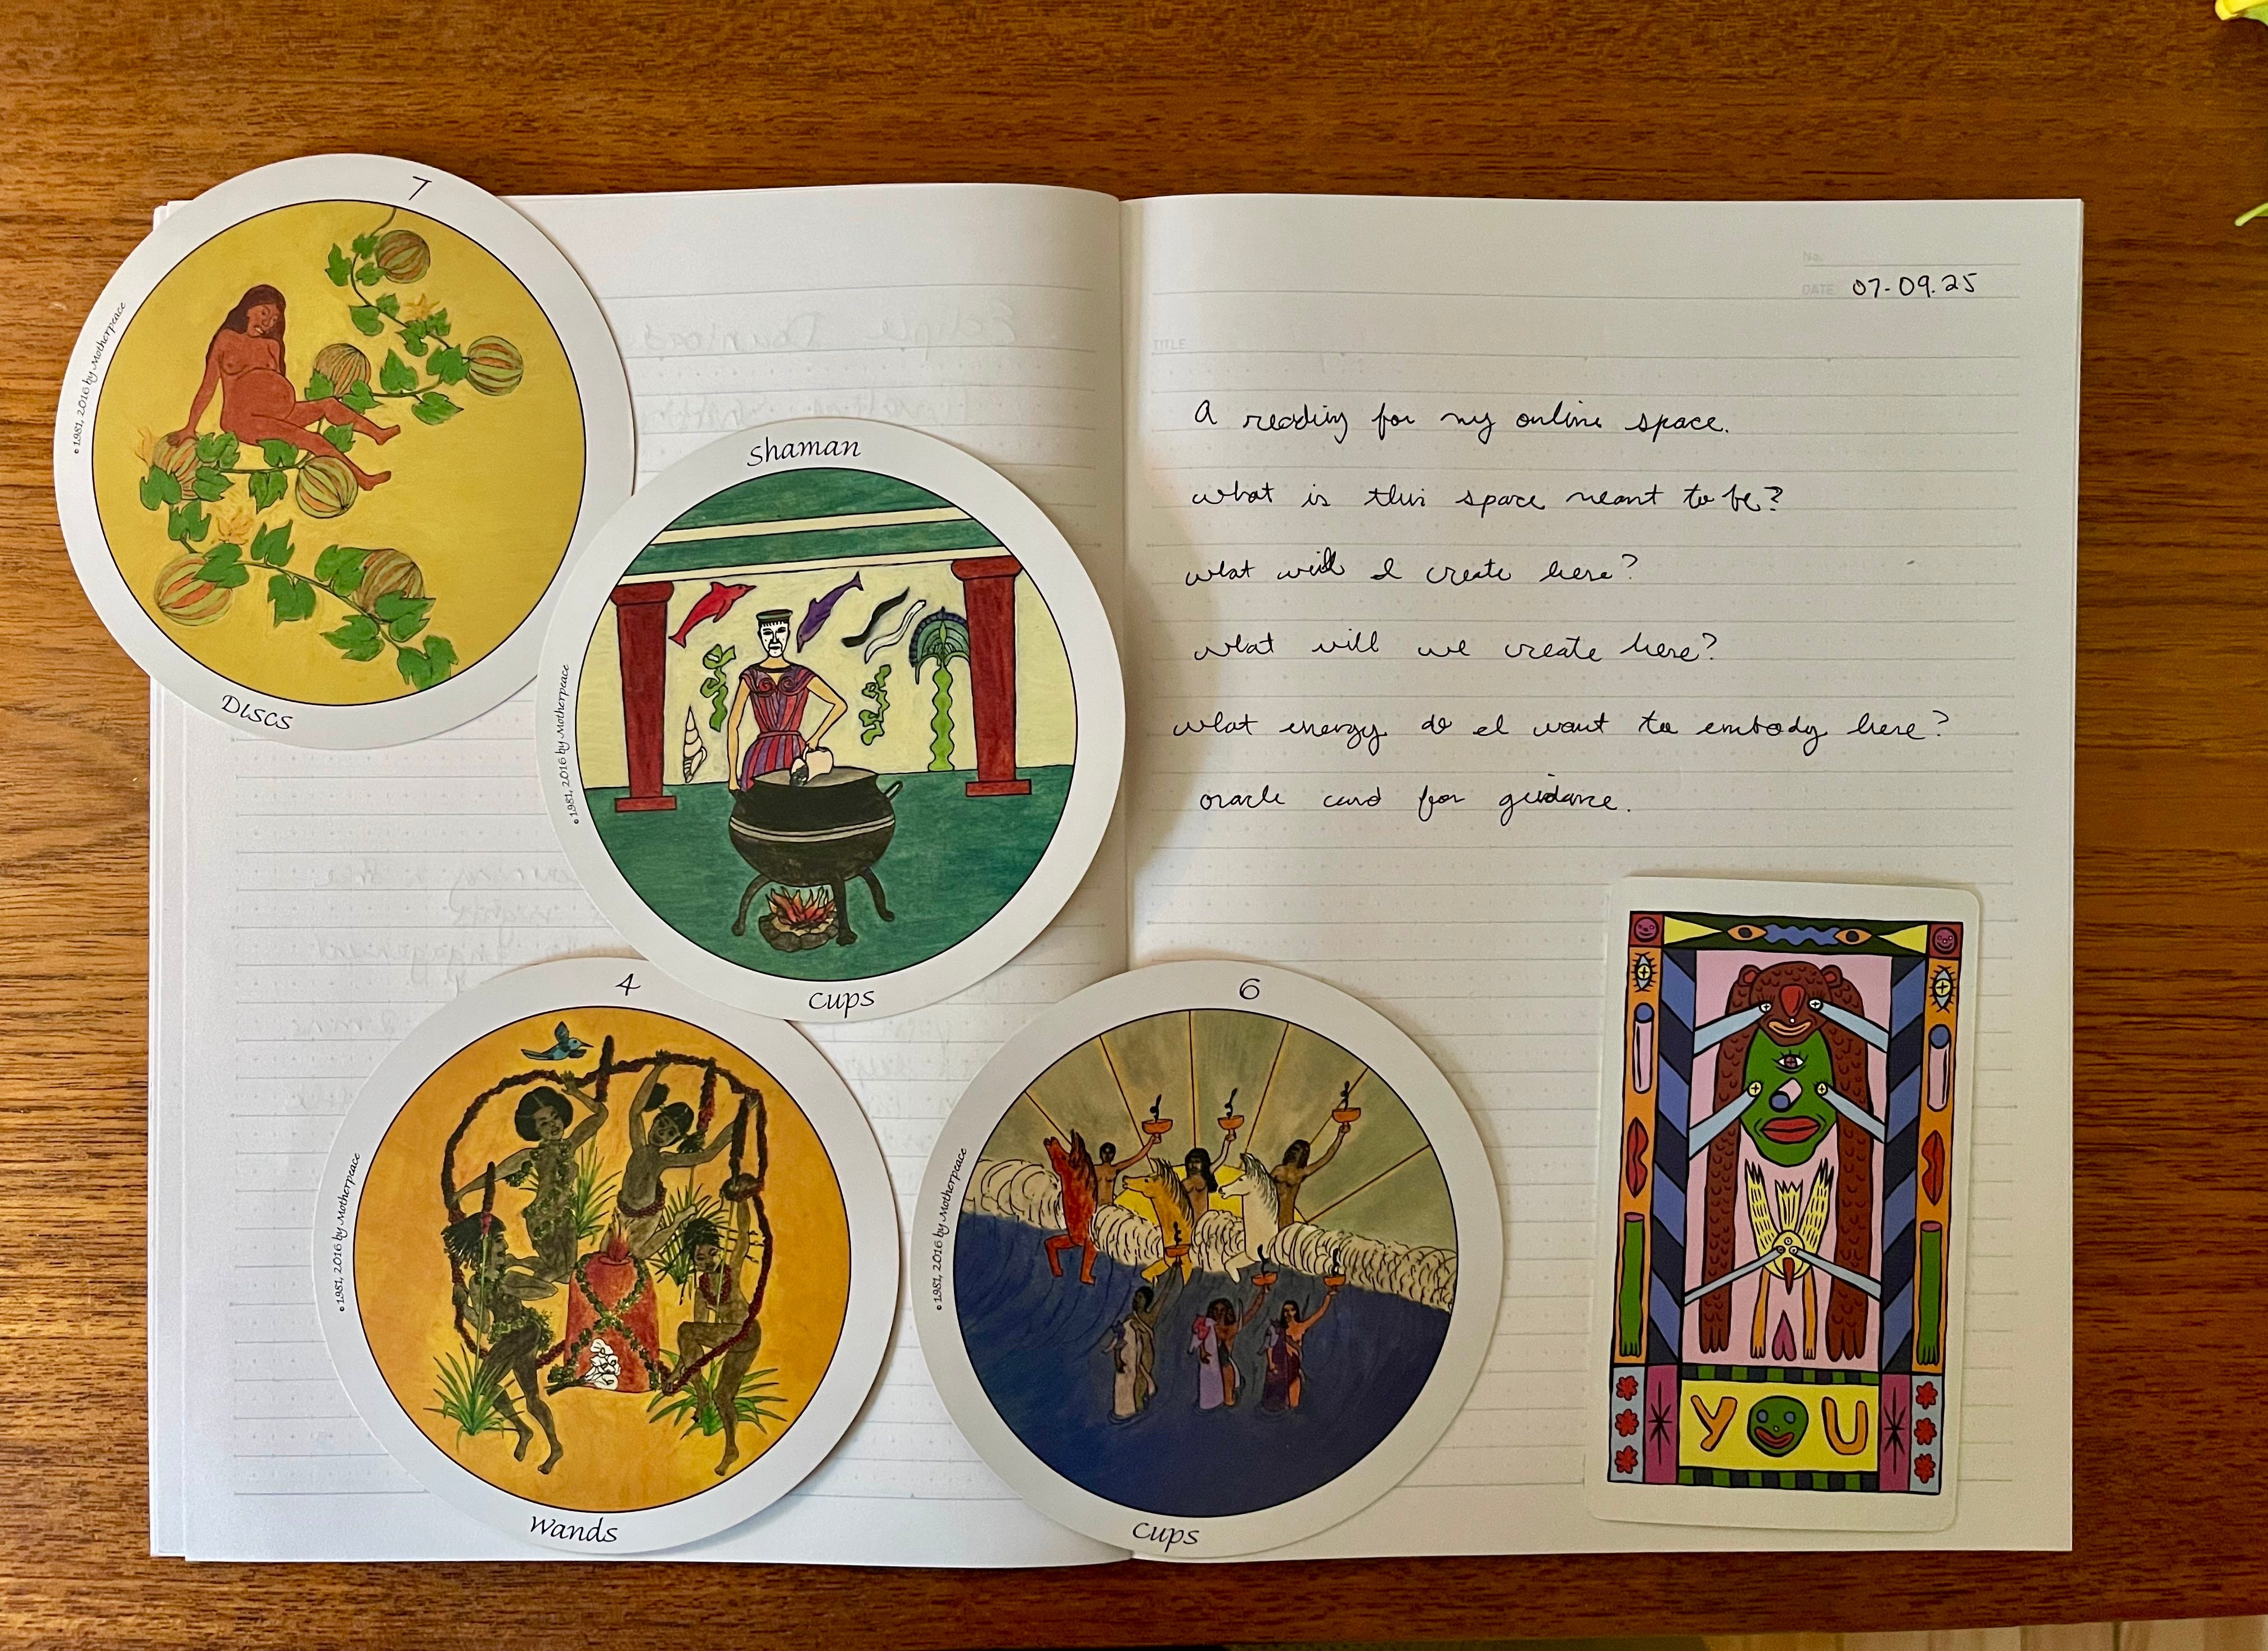 7
© 1981, 2016 by Motherpeace
Discs
Shaman
© 1981, 2016 by Motherpeace
Cups
4
© 1981, 2016 by Motherpeace
Wands
6
© 1981, 2016 by Motherpeace
Cups
No.
DATE 07-09.25
TITLE
A reading for my online space.
what is this space meant to be?
what will I create here?
what will we create here?
what energy do I want to embody here?
oracle card for guidance.
YOU